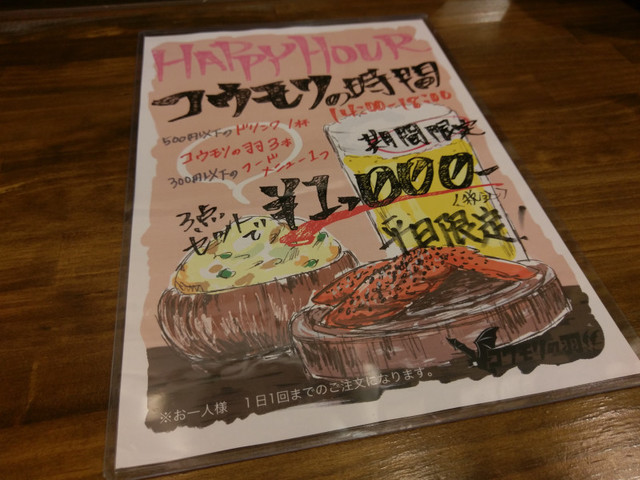 HAPPY HOUR
コウモリの時間
14:00-18:00
500円以下のドリンク1杯
コウモリの羽3本
300円以下のフードメニュー1つ
期間限定
3点セットで
¥1,000-
(税込)
平日限定!
コウモリの羽
※お一人様 1日1回までのご注文になります。